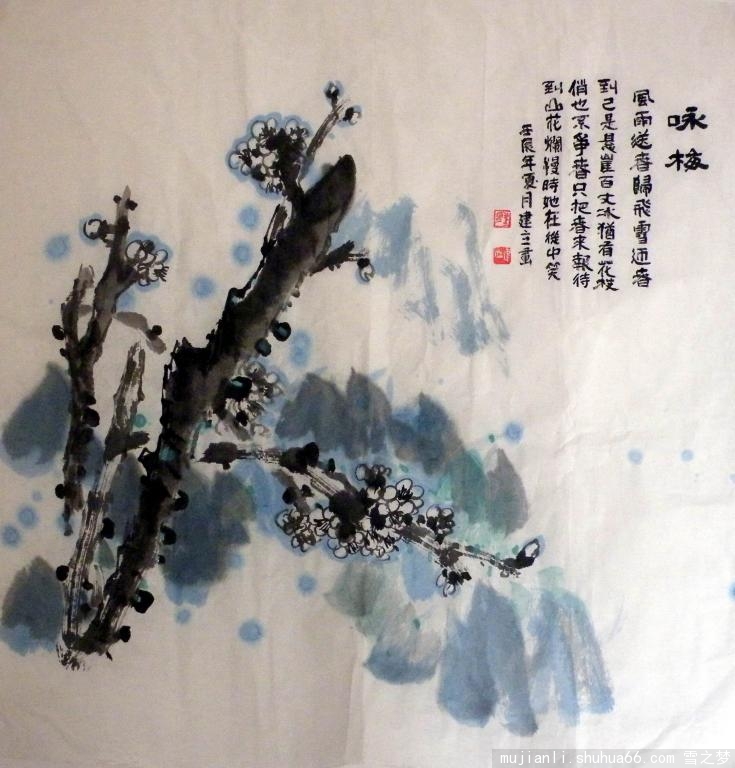 咏梅
風雨送春歸飛雪迎春
到已是悬崖百丈冰猶有花枝
俏也不爭春只把春來報待
到山花爛熳時她在從中笑
壬辰年夏月建立畫
mujianli.shuhua66.com 雪之梦